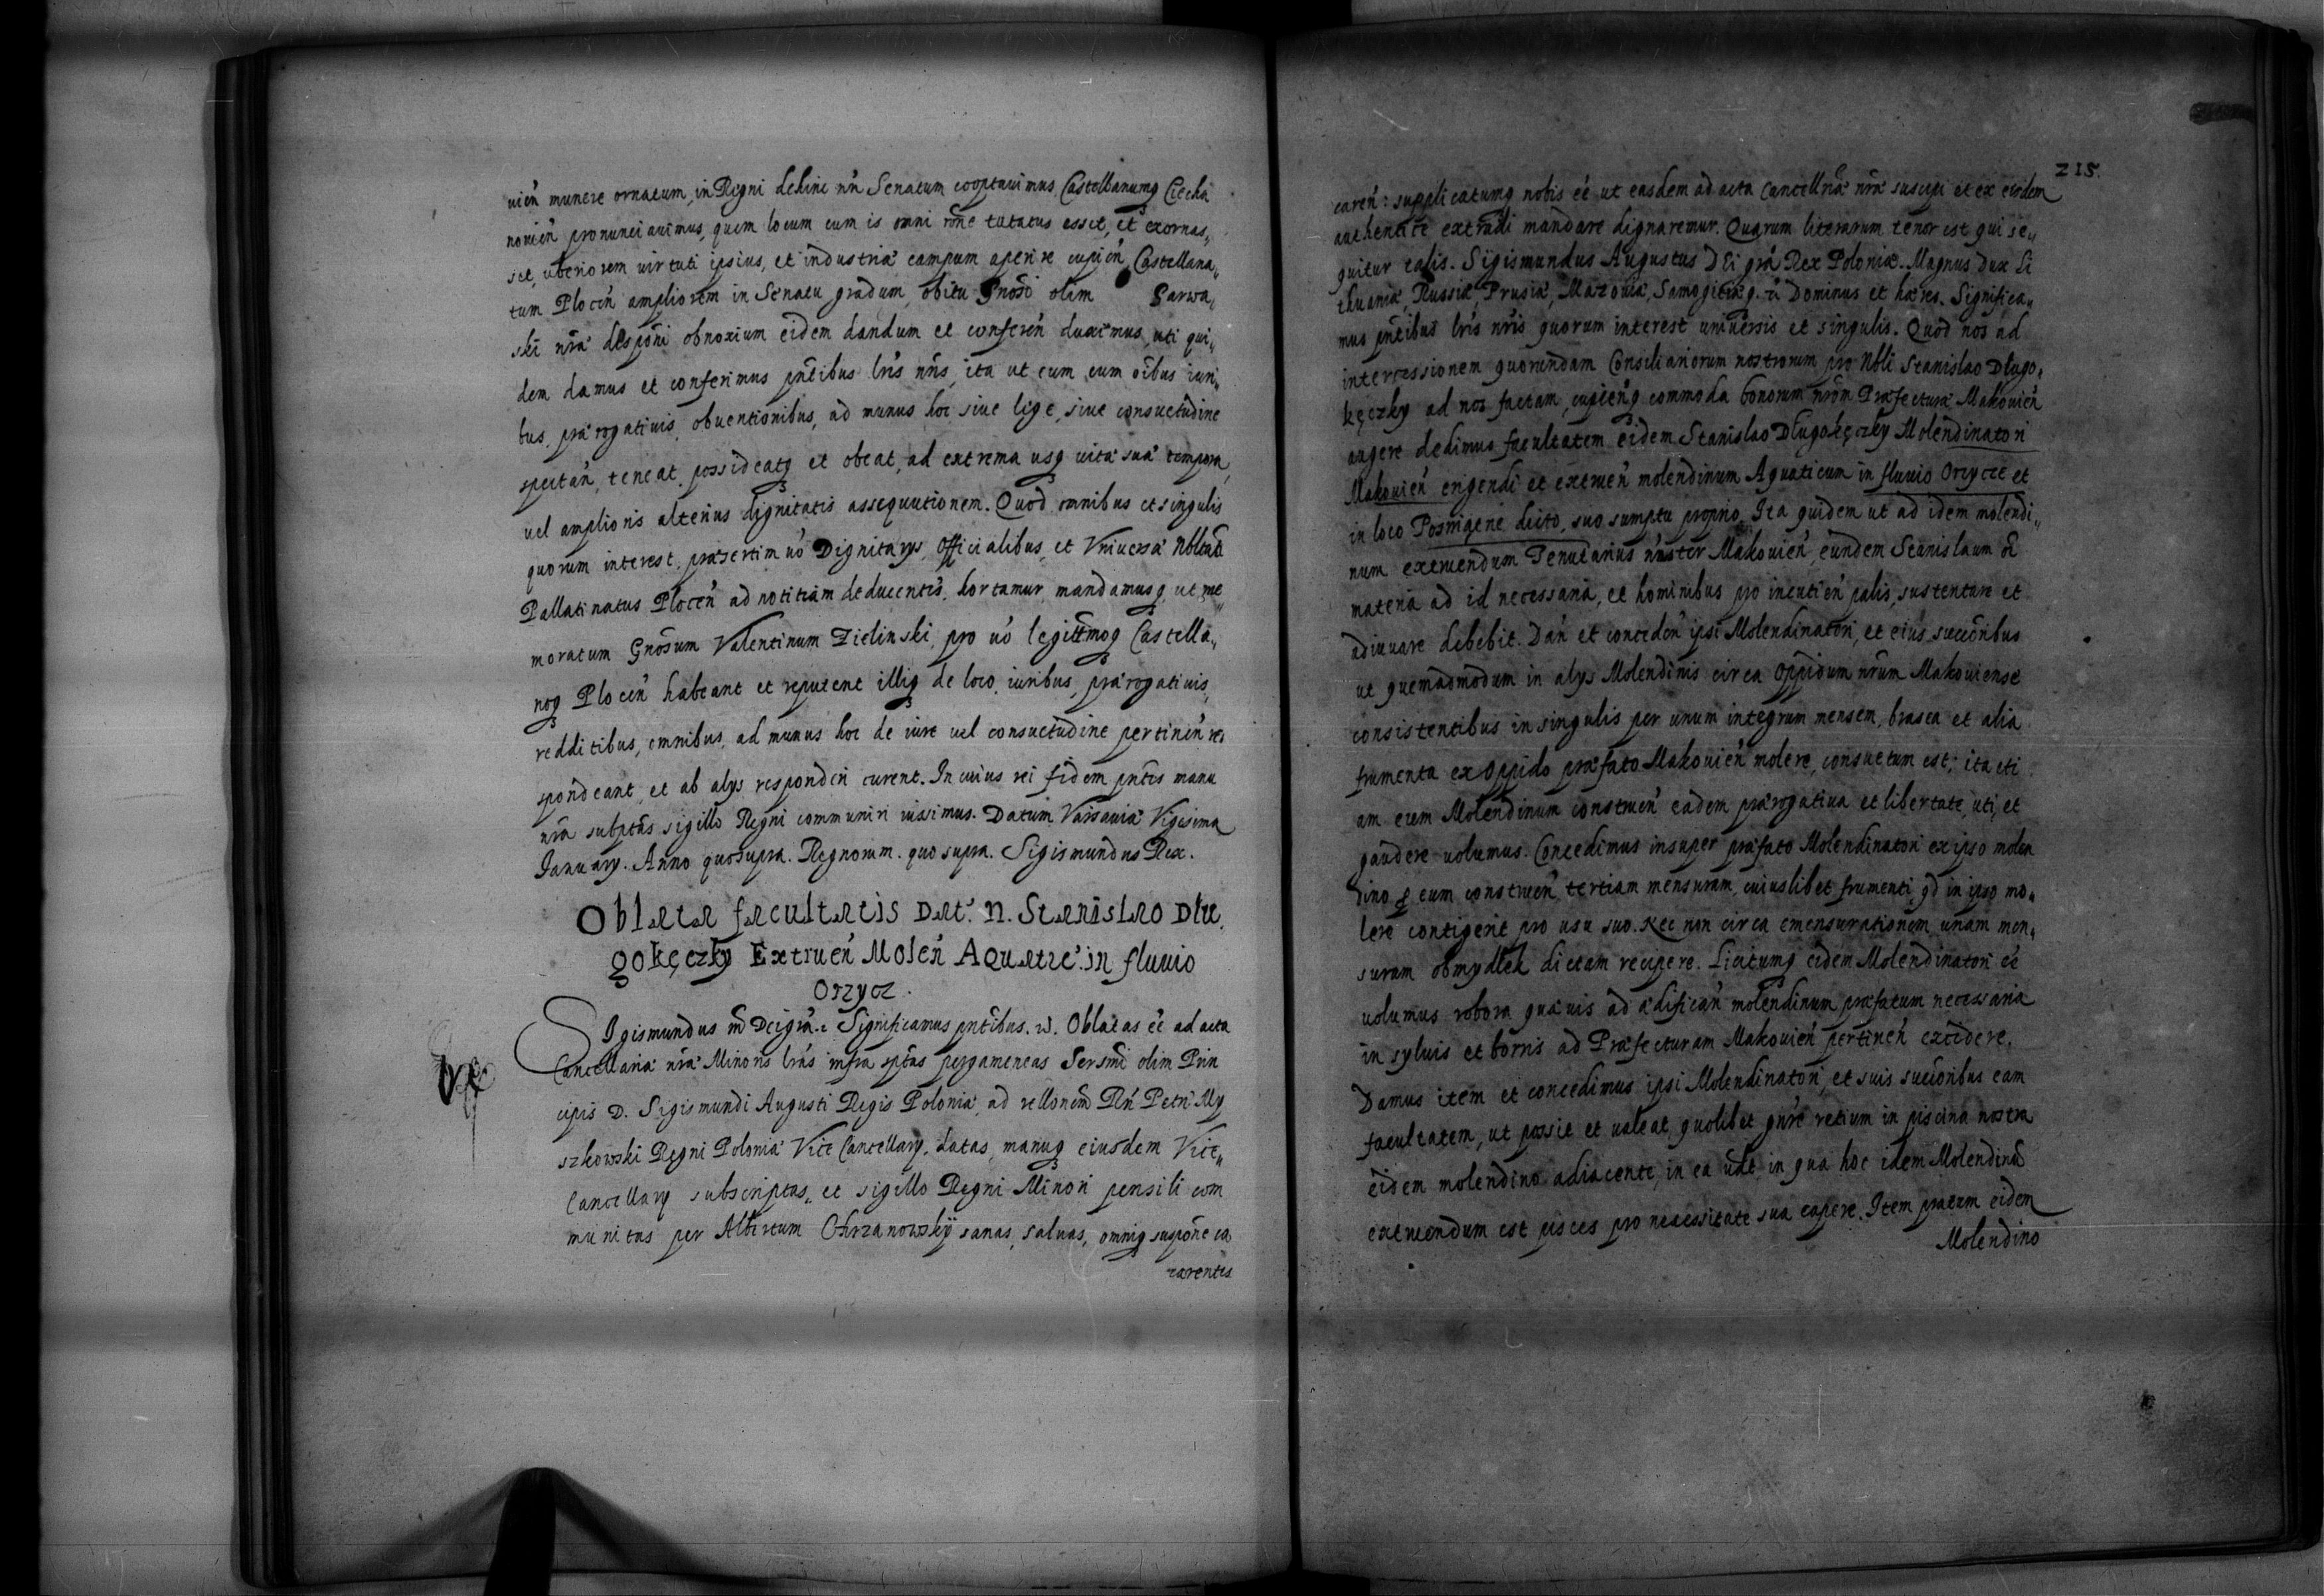 uień munere ornatum, in Regni dehinc nrm Senatum cooptauimus, Castellanumq Ciecha
nouień pronunciauimus, quem locum cum is omni rõne tutatus esset, et exornas„
set, uberiorem uirtuti ipsius, et industriæ campum aperire cupień, Castellana„
tum Ploceń ampliorem in Senatu gradum, obitu Gnosi olim Garwa„
ski nræ disponi obnoxium eidem dandum et confereń duximus, uti qui„
dem damus et conferimus pntibus lris nris, ita ut eum cum oibus iuri„
bus, prærogatiuis, obuentionibus, ad munus hoc siue lege, siue consuetudine
spectań, teneat, possideatq et obeat, ad extrema usq uitæ suæ tempora,
uel amplioris alterius dignitatis assequutionem. Quod omnibus et singulis
quorum interest, præsertim uo Dignitarys, Officialibus, et Vniuersæ Nobltati
Pallatinatus Ploceń ad notitiam deducentes, hortamur, mandamusq, ut me„
moratum Gnosum Valentinum Zielinski, pro uo legittimoq Castella„
noq Ploceń habeant et reputent illiq de loco, iuribus, prærogatiuis,
redditibus, omnibus, ad munus hoc de iure uel consuetudine pertineń res
pondeant, et ab alys responderi curent. In cuius rei fidem pntes manu
nra subptas sigillo Regni communiri iussimus. Datum Varsauiæ Vigesima
January. Anno quosupra. Regnorum. quo supra. Sigismundus Rex.
Oblata facultatis Dat. N. Stanislao Dłu„
gokęczky Extrueń Moleń Aquatic. in fluuio
Orzycz.
Sigismundus 3 Dei gra. Significamus pntibus. Oblatas eé ad acta
Cancellariæ nræ Minoris lras infra sptas pergameneas Sersmi olim Prin
cipis D. Sigismundi Augusti Regis Poloniæ, ad rellonem Rń Petri My
szkowski Regni Poloniæ Vice Cancellary, datas, manuq eiusdem Vice„
Cancellary subscriptas, et sigillo Regni Minori pensili com
munitas per Albertum Chrzanowskÿ sanas, saluas, omniq suspone ca
carentes

215.
careń: supplicatumq nobis eé ut easdem ad acta Cancellriæ nræ suscipi et ex eisdem
authentice extradi mandare dignaremur. Quarum literarum tenor est qui se„
quitur talis. Sigismundus Augustus Dei gra Rex Poloniæ. Magnus Dux Li
thuaniæ, Russiæ, Prusiæ, Mazouiæ, Samogitiæq. Dominus et hæres. Significa„
mus pntibus lris nris quorum interest uniuersis et singulis. Quod nos ad
intercessionem quorundam Consiliariorum nostrorum pro Nbli Stanislao Długo„
kęczky ad nos factam, cupienq commoda bonorum nrorum Præfecturæ Makouień
augere dedimus facultatem eidem Stanislao Długokęczky Molendinatori
Makouień erigendi et extrueń molendinum Aquaticum in fluuio Orzycze et
in loco Posnigene dicto, suo sumptu proprio, Ita quidem ut ad idem molendi„
num extruendum Tenutarius noster Makouień, eundem Stanislaum
materia ad id necessaria, et hominibus pro incutień palis, sustentare et
adiuuare debebit. Dań et concedeń ipsi Molendinatori, et eius succoribus
ut quemadmodum in alys Molendinis circa Oppidum nrum Makouiense
consistentibus in singulis per unum integrum mensem, brasea et alia
frumenta ex Oppido præfato Makouień molere, consuetum est; ita eti
am eum Molendinum construeń eadem prærogatiua et libertate, uti, et
gaudere uolumus. Concedimus insuper præfato Molendinatori ex ipso molen
dino p eum construeń tertiam mensuram, cuiuslibet frumenti, qd in ipso mo„
lere contigerit pro usu suo. Nec non circa emensurationem, unam men„
suram obmydlek dictam recipere. Licitumq eidem Molendinatori eé
uolumus robora quæuis ad ædificań molendinum præfatum necessaria
in syluis et borris ad Præfecturam Makouień pertineń excidere.
Damus item et concedimus ipsi Molendinatori, et suis succoribus eam
facultatem, ut possit et ualeat quolibet gnre retium in piscina nostra
eidem molendino adiacente, in ea in qua hoc idem Molendinum
extruendum est pisces pro necessitate sua capere. Item pratum eidem
Molendino